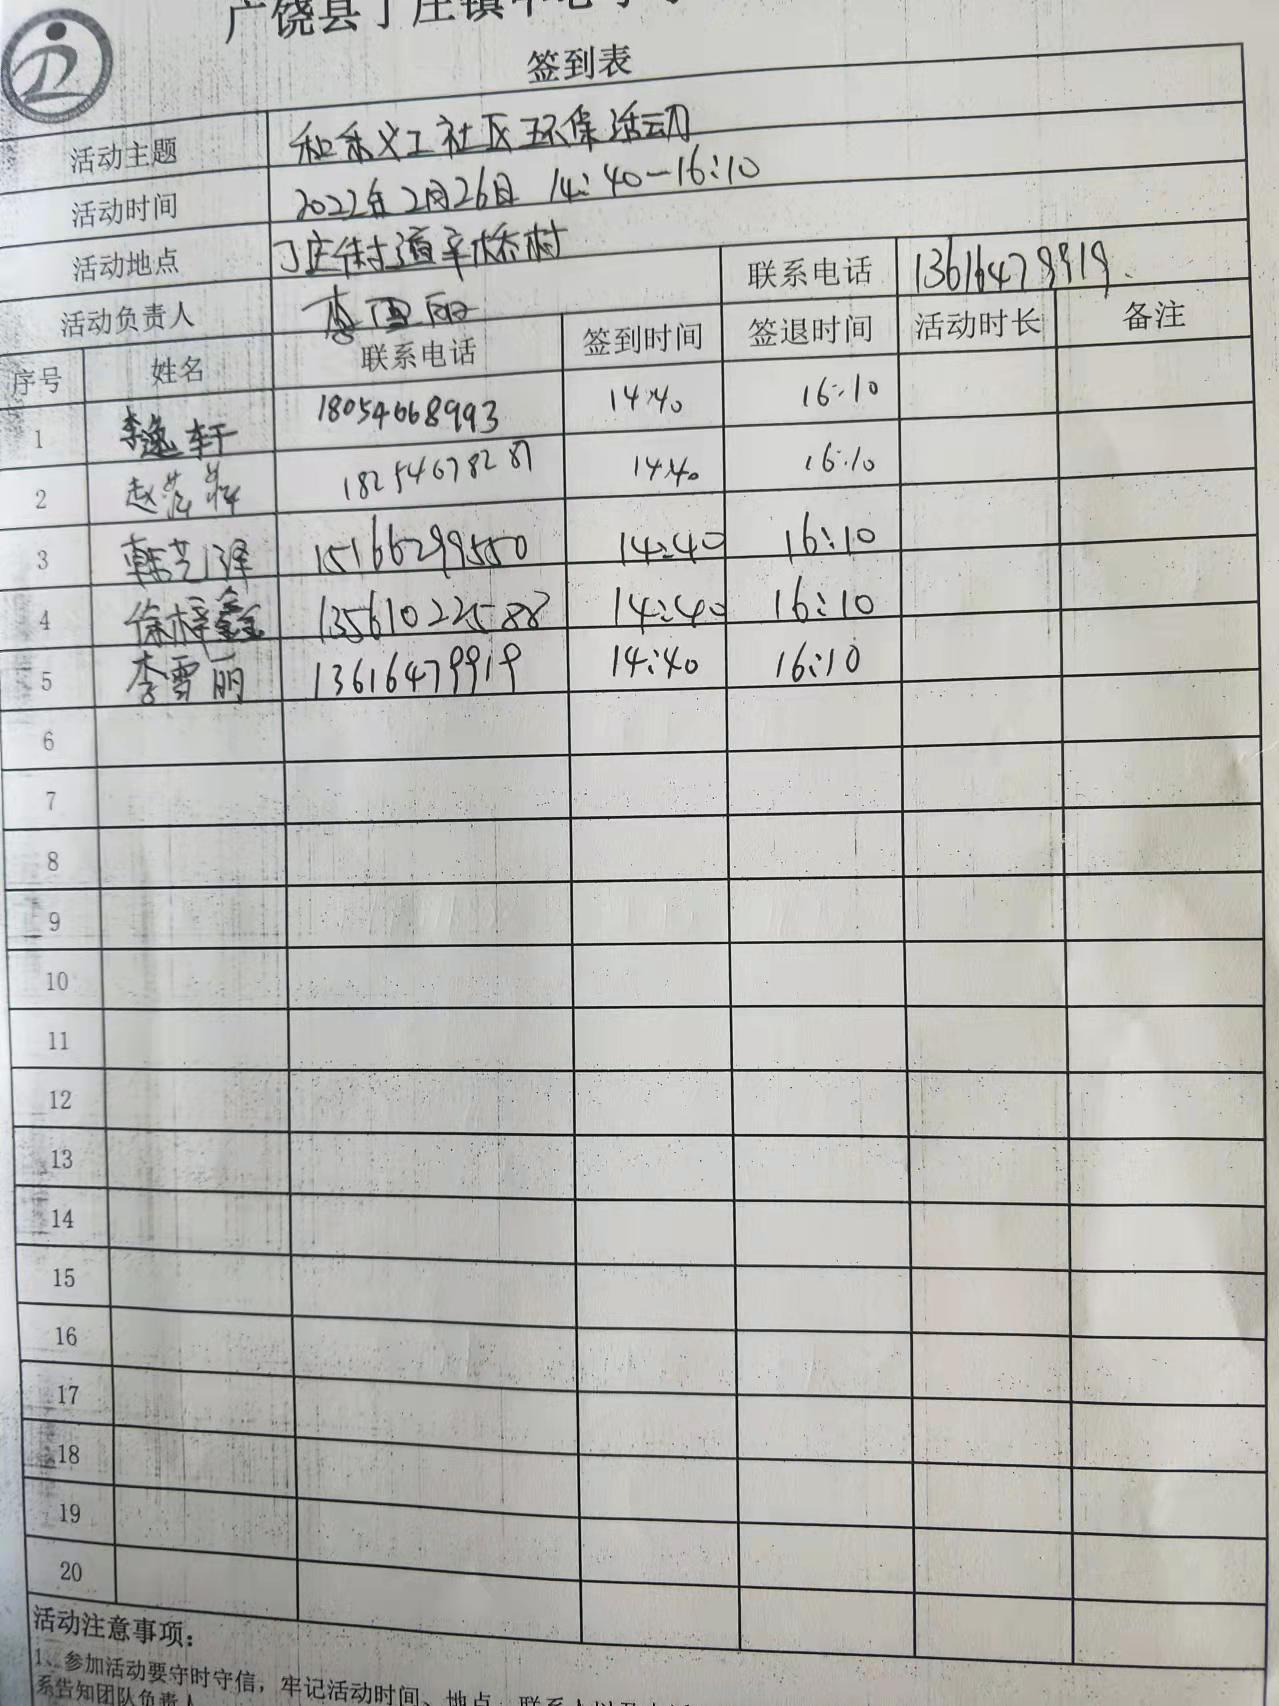 广饶县丁庄镇中心学
签到表
活动主题 和系义工社区环保活动
活动时间 2022年2月26日 14:40-16:10
活动地点 丁庄街道辛桥村
活动负责人 李雪丽 联系电话 13616479919
序号 姓名 联系电话 签到时间 签退时间 活动时长 备注
1 李逸轩 18054668993 14:40 16:10
2 赵 18254678287 14:40 16:10
3 韩艺泽 15166299550 14:40 16:10
4 徐梓鑫 13561022588 14:40 16:10
5 李雪丽 13616479919 14:40 16:10
6
7
8
9
10
11
12
13
14
15
16
17
18
19
20
活动注意事项：
1、参加活动要守时守信，牢记活动时间、地点、联系人以及
系告知团队负责人